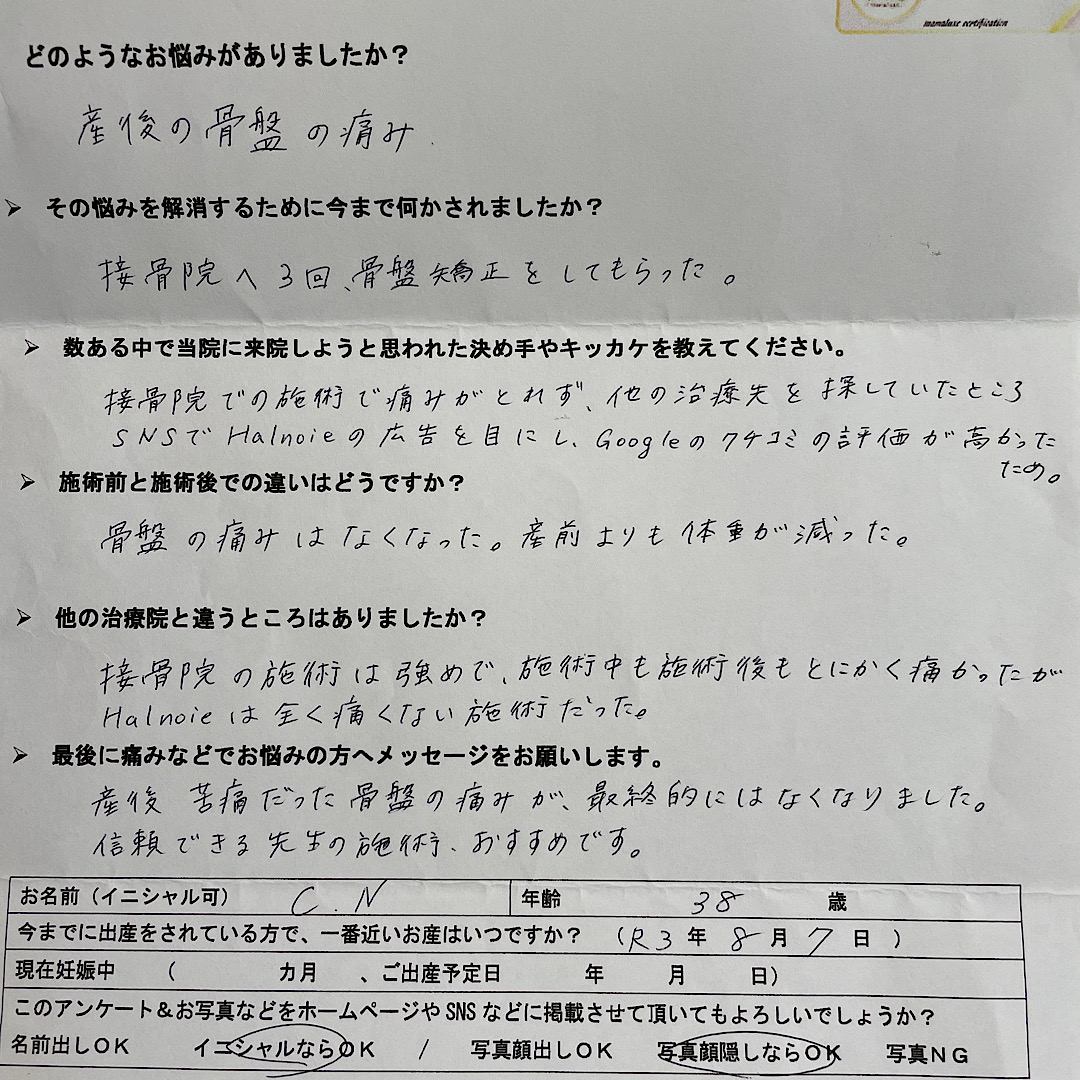 mamaluxe certification
どのようなお悩みがありましたか？
産後の骨盤の痛み.
➤ その悩みを解消するために今まで何かされましたか？
接骨院へ3回、骨盤矯正をしてもらった。
➤ 数ある中で当院に来院しようと思われた決め手やキッカケを教えてください。
接骨院での施術で痛みがとれず、他の治療先を探していたところ
SNSでHalnoieの広告を目にし、Googleのクチコミの評価が高かった
ため。
➤ 施術前と施術後での違いはどうですか？
骨盤の痛みはなくなった。産前よりも体重が減った。
➤ 他の治療院と違うところはありましたか？
接骨院の施術は強めで、施術中も施術後もとにかく痛かったが
Halnoieは全く痛くない施術だった。
➤ 最後に痛みなどでお悩みの方へメッセージをお願いします。
産後苦痛だった骨盤の痛みが、最終的にはなくなりました。
信頼できる先生の施術、おすすめです。
お名前（イニシャル可） C.N 年齢 38 歳
今までに出産をされている方で、一番近いお産はいつですか？ （R3年 8月 7日 ）
現在妊娠中 （ カ月 、ご出産予定日 年 月 日）
このアンケート＆お写真などをホームページやSNSなどに掲載させて頂いてもよろしいでしょうか？
名前出しOK イニシャルならOK / 写真顔出しOK 写真顔隠しならOK 写真NG